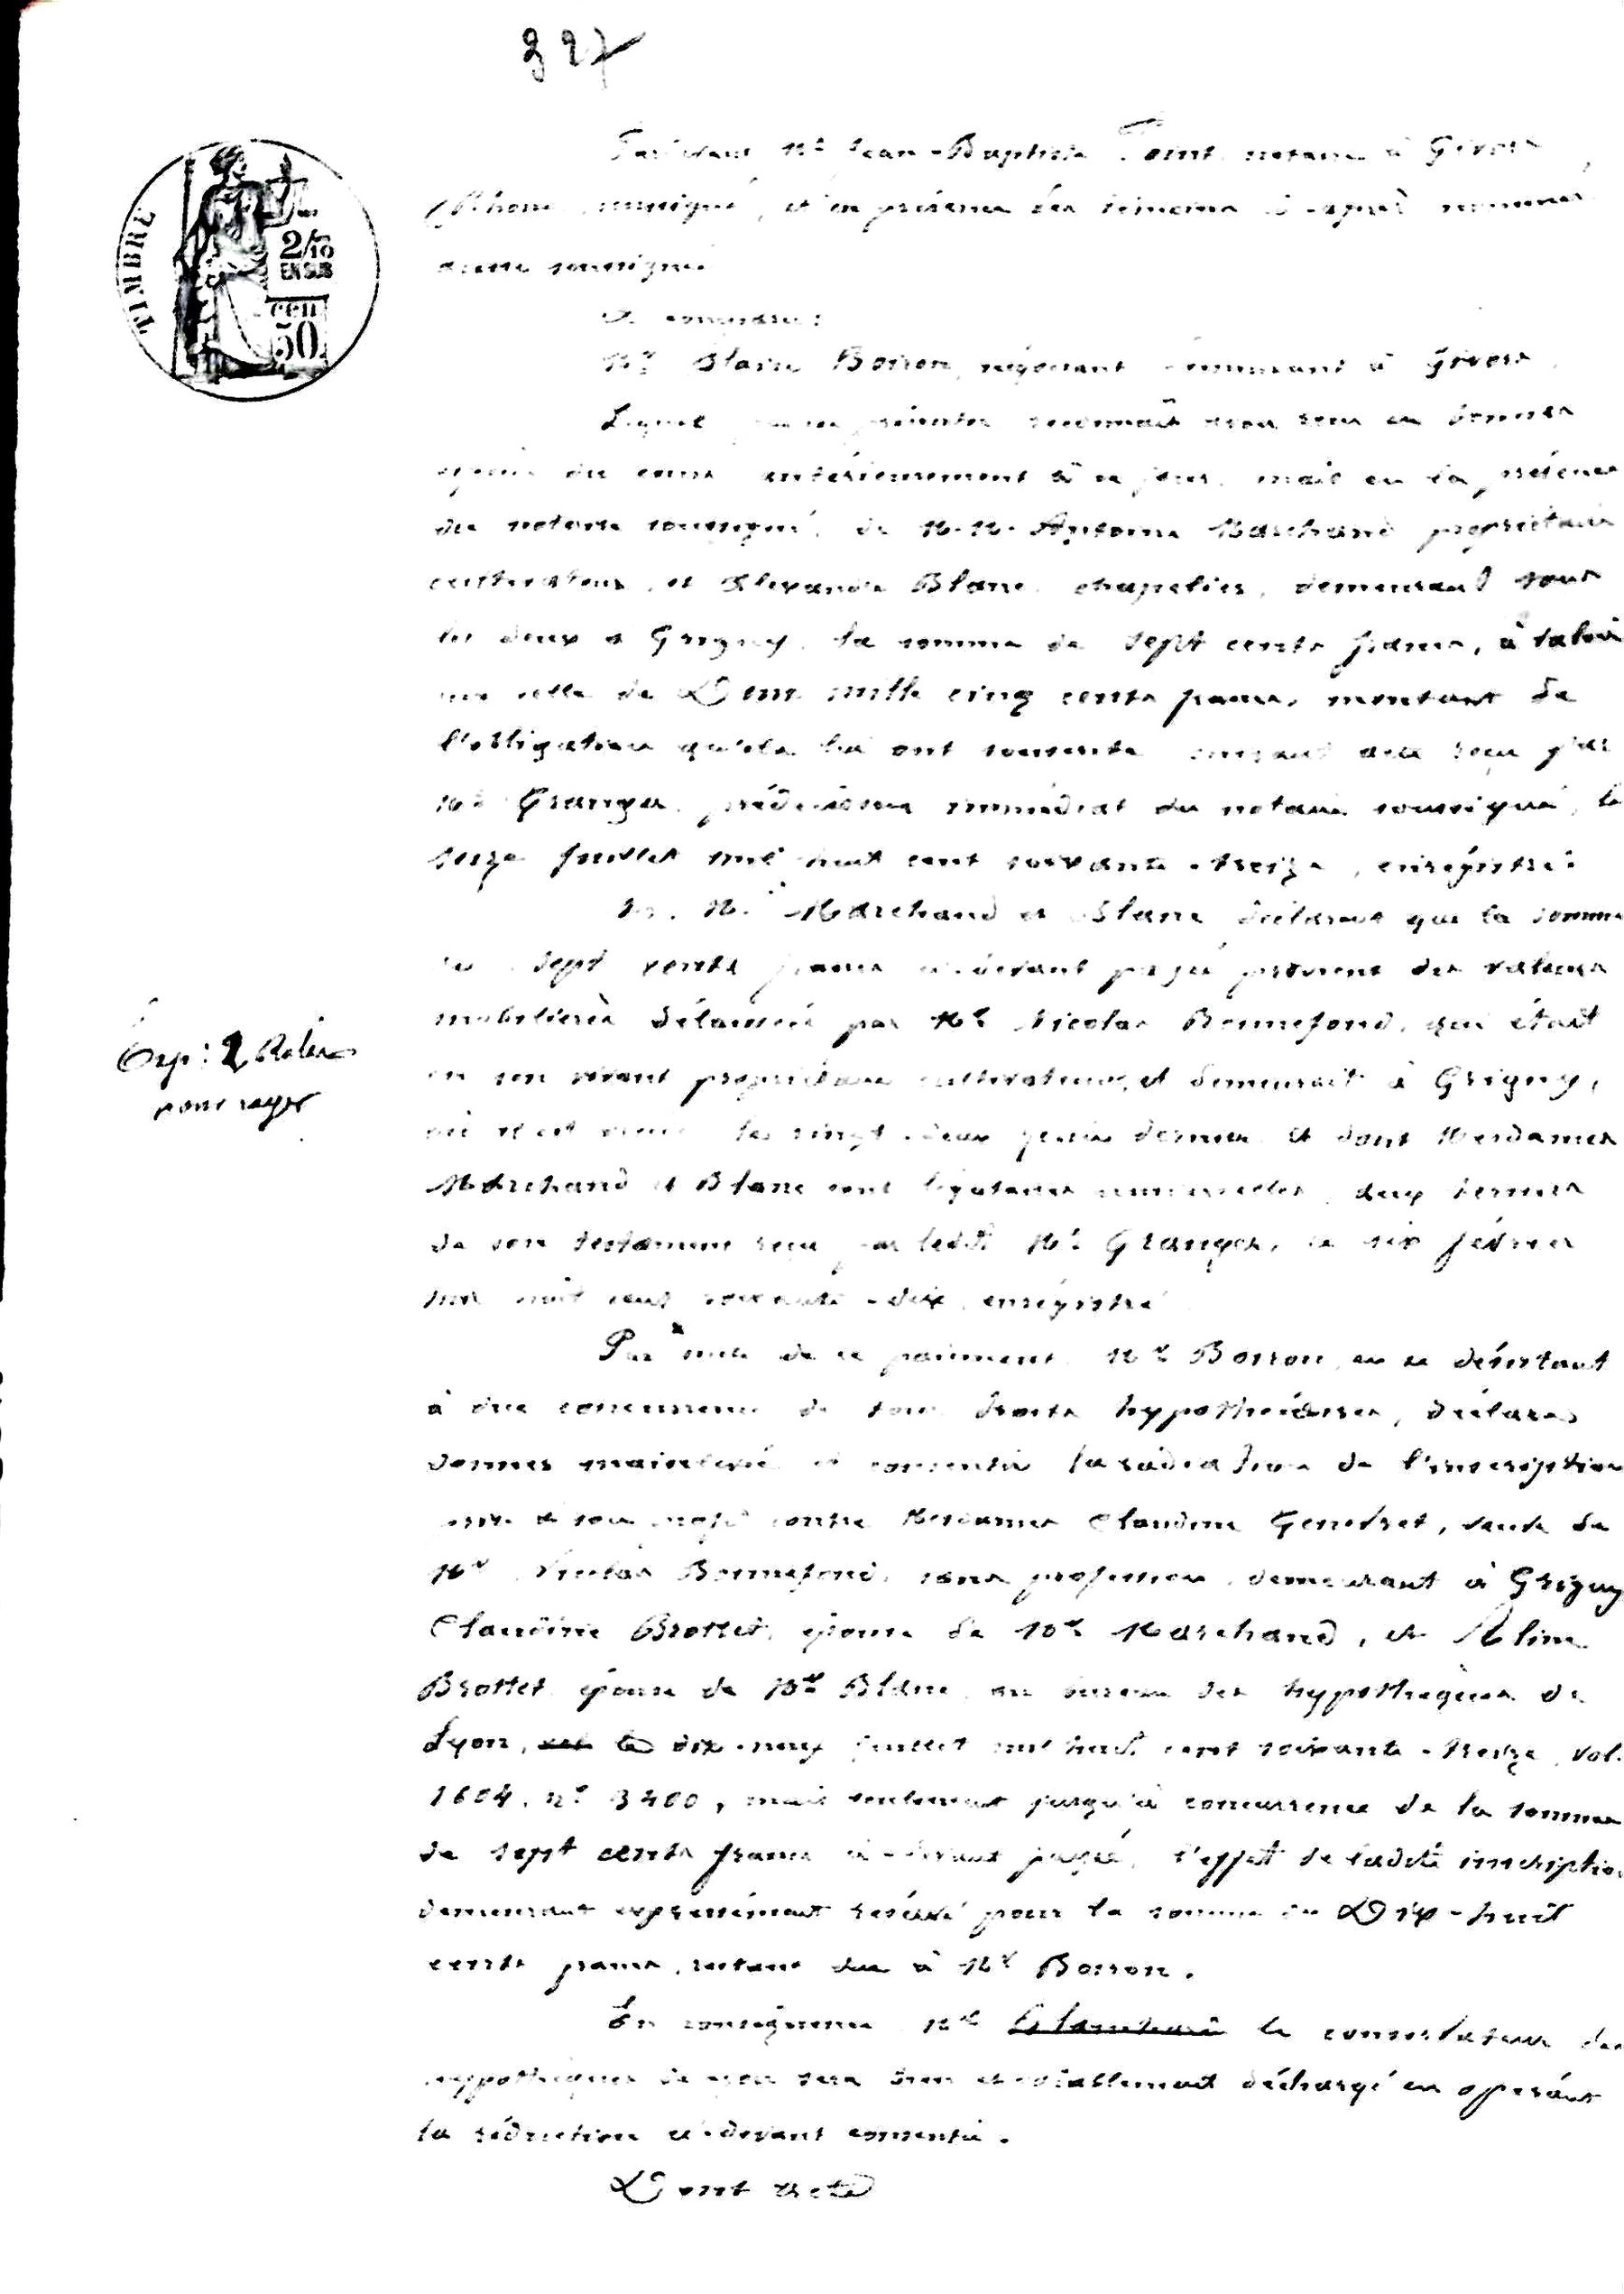 327
TIMBRE
2/10
EN SUS
cen
50
Par devant Me Jean-Baptiste notaire à Givors
(Rhône) soussigné, et en présence des témoins ci-après nommés
aussi soussignés
A comparu :
Mr Blaise Boiron négociant demeurant à Givors
Lequel par ces présentes reconnaît avoir reçu en bonnes
espèces du cours antérieurement à ce jour, mais en la présence
du notaire soussigné, de M.M. Antoine Marchand propriétaire
cultivateur, et Alexandre Blanc chapelier, demeurant tous
les deux à Grigny, la somme de sept cents francs, à valoir
sur celle de Deux mille cinq cents francs, montant de
l'obligation qu'ils lui ont souscrite suivant acte reçu par
Me Granger, prédécesseur immédiat du notaire soussigné, le
seize juillet mil huit cent soixante-treize, enregistré.
M. M. Marchand et Blanc déclarent que la somme
de sept cents francs ci-devant payée provient des valeurs
mobilières délaissées par Mr Nicolas Bonnefond, qui était
en son vivant propriétaire cultivateur, et demeurait à Grigny,
où il est décédé le vingt-deux dernier et dont Mesdames
Marchand et Blanc sont légataires universelles, aux termes
de son testament reçu par ledit Me Granger, le six février
mil huit cent soixante-dix, enregistré
Exp: 2 Rôles
pour
Par suite de ce paiement, Mr Boiron, en se désistant
à due concurrence de tous droits hypothécaires, déclare
donner mainlevée et consentir la radiation de l'inscription
prise à son profit contre Mesdames Claudine Genevret, veuve de
Mr Nicolas Bonnefond, sans profession, demeurant à Grigny
Claudine Brottet, épouse de Mr Marchand, et
Brottet épouse de Mr Blanc, au bureau des hypothèques de
Lyon, le dix-neuf juillet mil huit cent soixante-treize, vol.
1604, no 3400, mais seulement jusqu'à concurrence de la somme
de sept cents francs ci-devant payée, l'effet de ladite inscription
demeurant expressément réservé pour la somme de Dix-huit
cents francs, restant due à Mr Boiron.
En conséquence Mr le conservateur des
hypothèques de Lyon sera bien et valablement déchargé en opérant
la réduction ci-devant consentie.
Dont acte